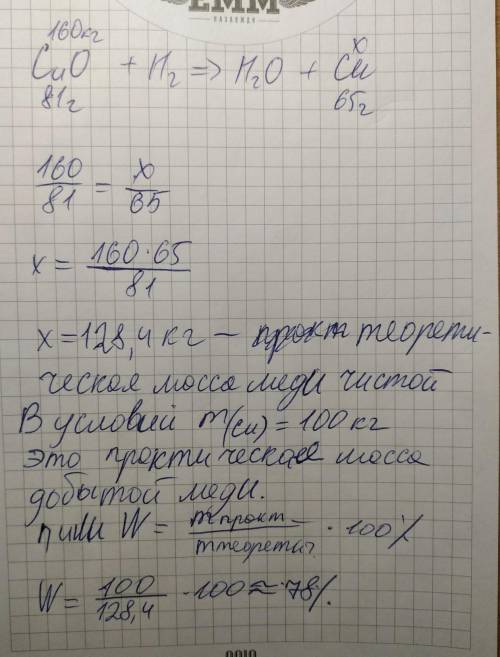 ЕММ
160кг x
CuO + H₂ => H₂O + Cu
81г 65г
160/81 = x/65
x = 160·65/81
x = 128,4 кг – теорети-
ческая масса меди чистой
В условий m(Cu) = 100 кг
это практическая масса
добытой меди.
W = m практ/m теоретич · 100%
W = 100/128,4 · 100 ≈ 78%.